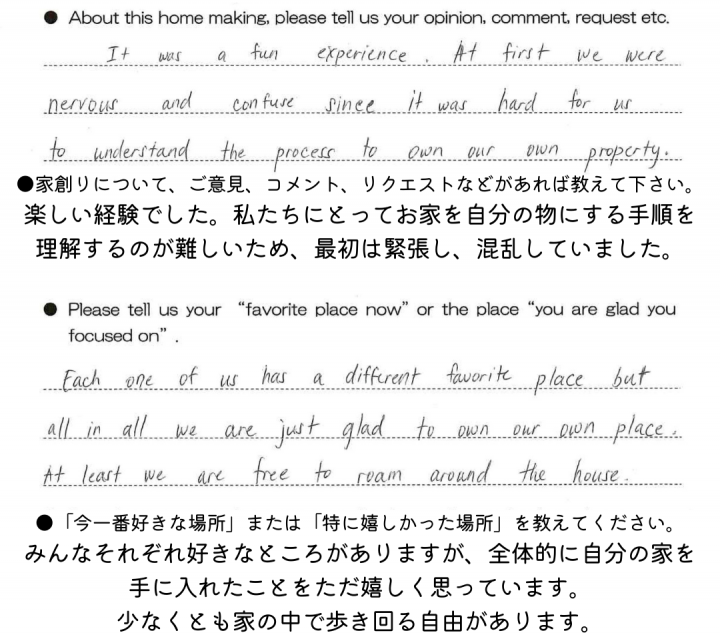 ● About this home making, please tell us your opinion, comment, request etc.
It was a fun experience. At first we were
nervous and confuse since it was hard for us
to understand the process to own our own property.
●家創りについて、ご意見、コメント、リクエストなどがあれば教えて下さい。
楽しい経験でした。私たちにとってお家を自分の物にする手順を
理解するのが難しいため、最初は緊張し、混乱していました。
● Please tell us your “favorite place now” or the place “you are glad you
focused on”.
Each one of us has a different favorite place but
all in all we are just glad to own our own place.
At least we are free to roam around the house.
●「今一番好きな場所」または「特に嬉しかった場所」を教えてください。
みんなそれぞれ好きなところがありますが、全体的に自分の家を
手に入れたことをただ嬉しく思っています。
少なくとも家の中で歩き回る自由があります。